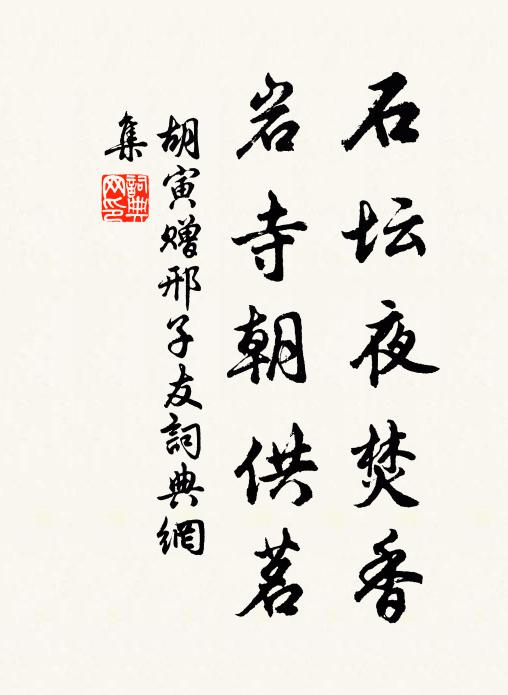 石坛夜焚香
岩寺朝供茗
胡寅赠邢子友詞典網
集
詞典
网印